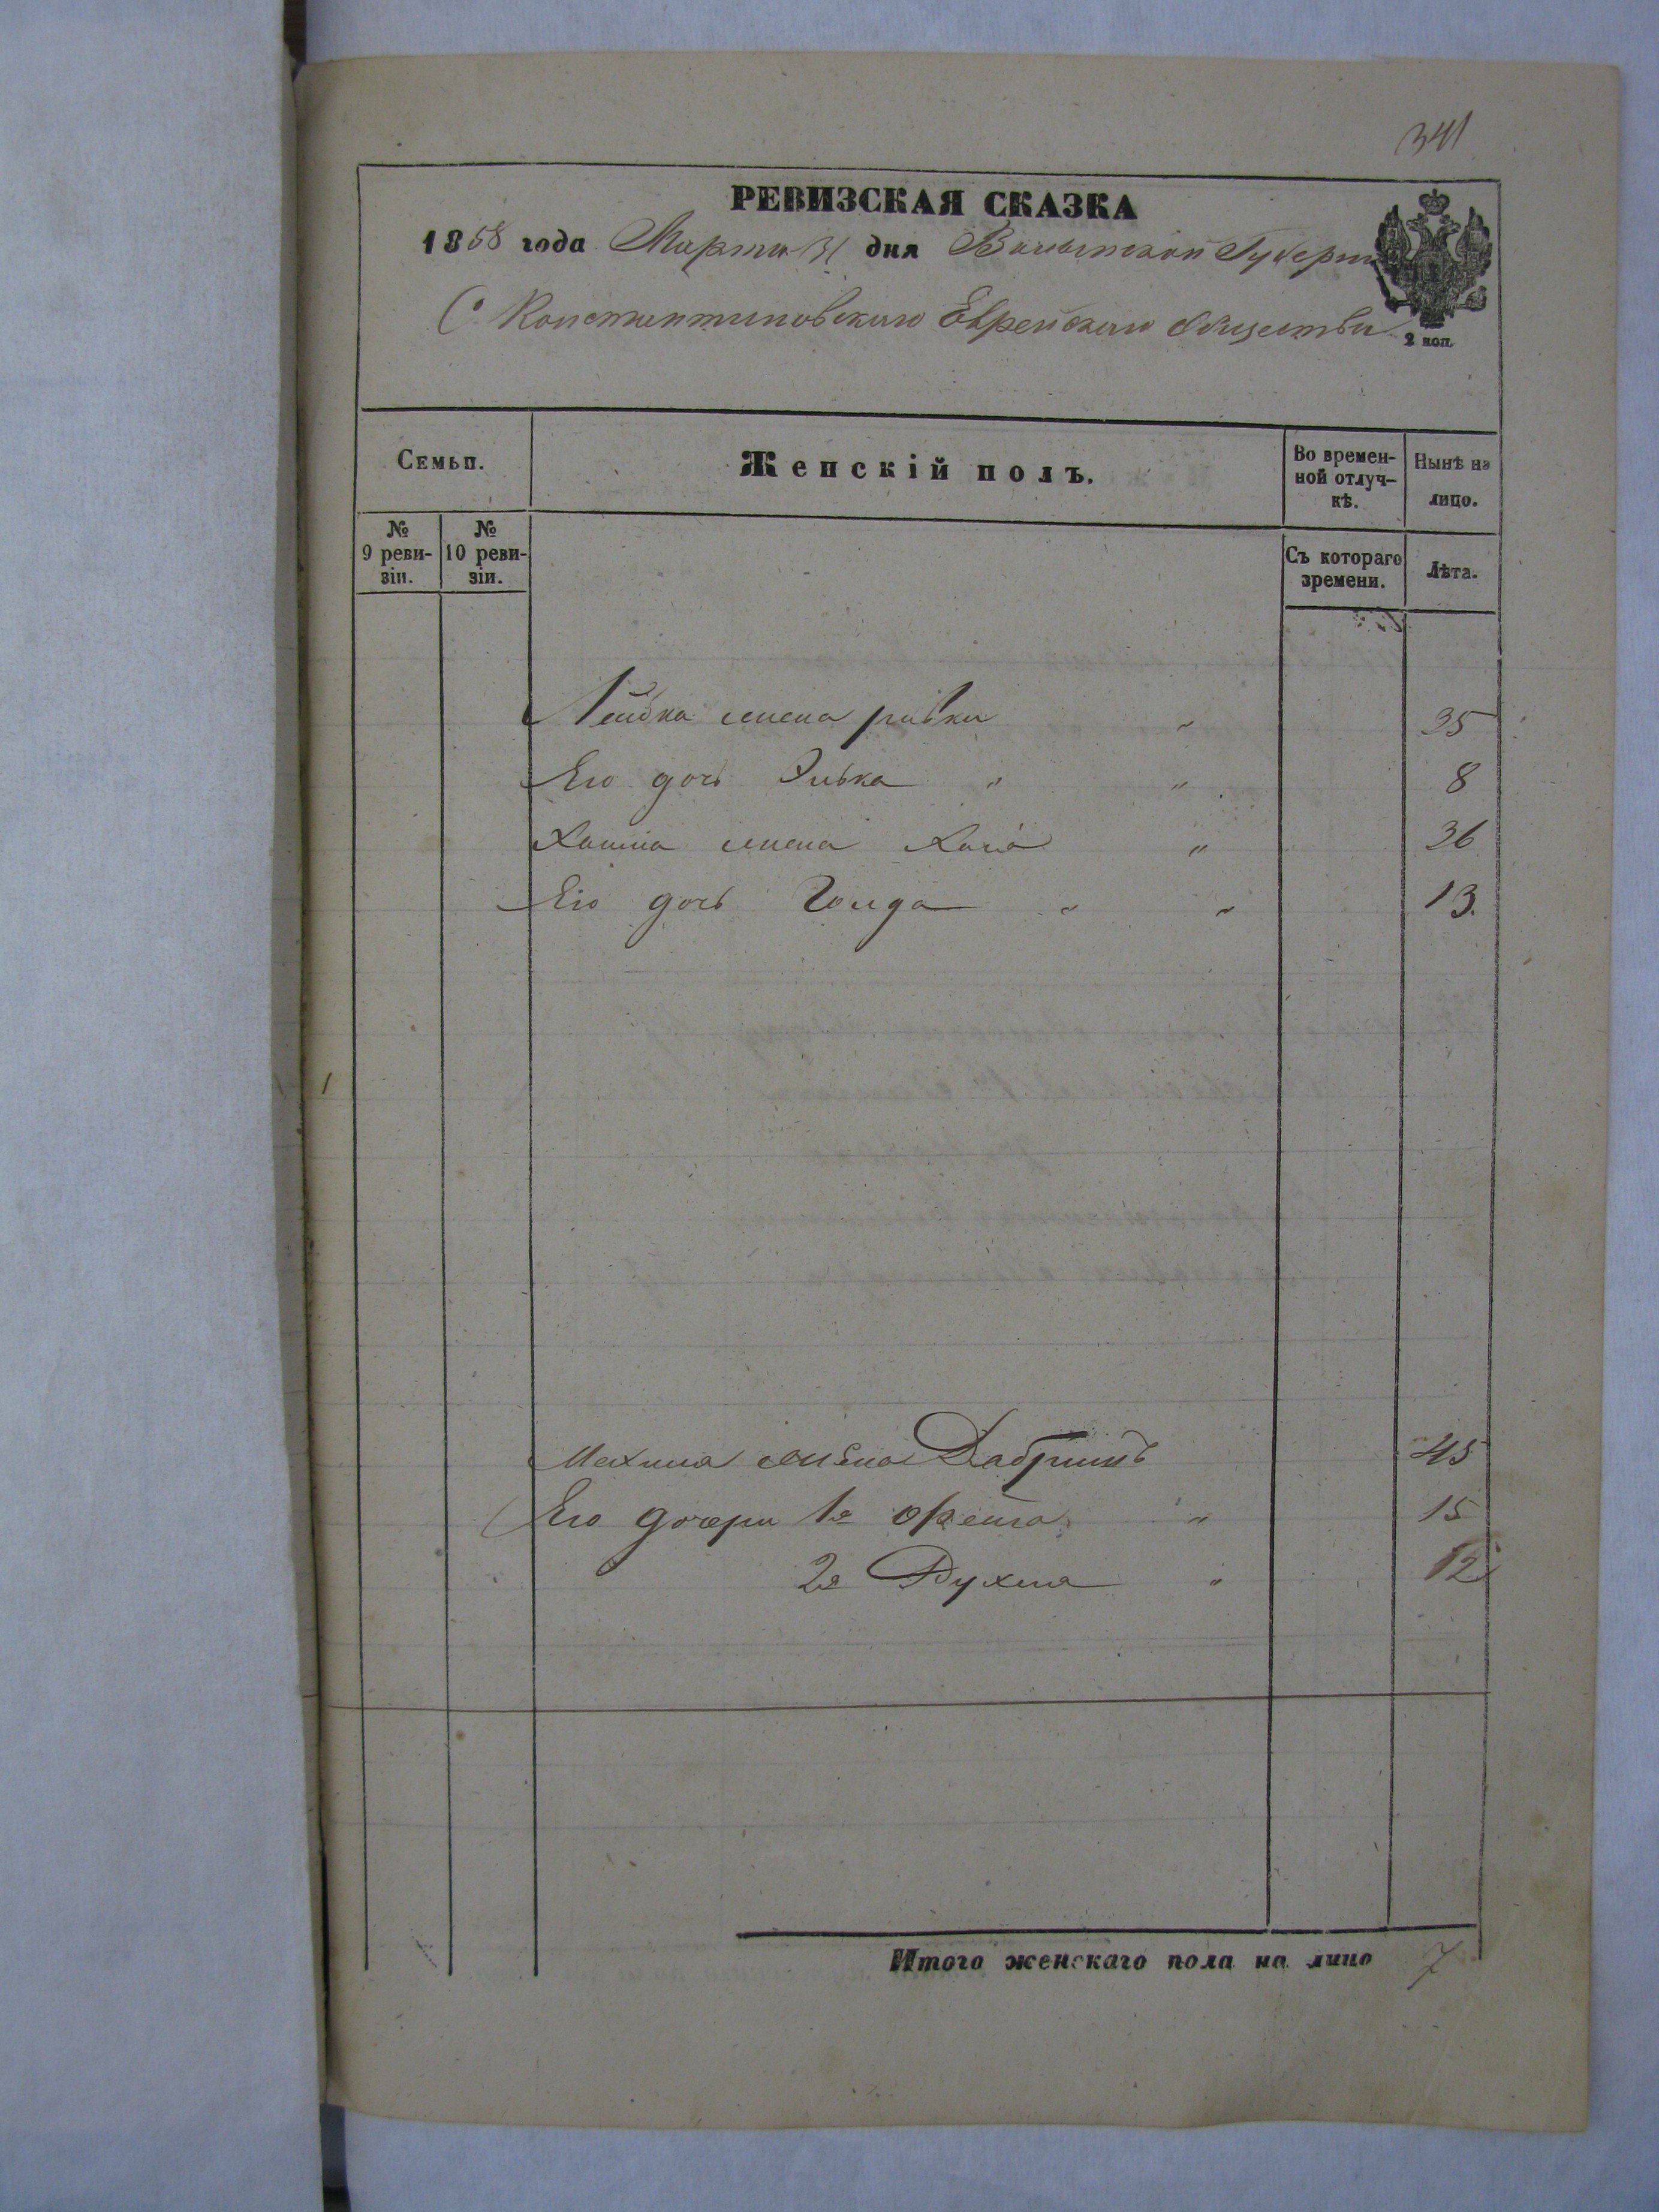 341
РЕВИЗСКАЯ СКАЗКА
1858 года Марта 31 дня Волынской Губерни
С. Константиновскаго Еврейскаго Общества
2 коп.
Семьи.
Женскій полъ.
Во времен-
ной отлуч-
кѣ.
Нынѣ на
лицо.
№
9 реви-
зіи.
№
10 реви-
зіи.
Съ котораго
времени.
Лѣта.
Лейбка жена ривка " 35
Его дочь Элька " " 8
Хаима жена Хаиа " 36
Его дочь Голда " " 13.
жена 45
Его дочери 1я офеига " 15
2я Рухля " 12
Итого женскаго пола на лицо 7